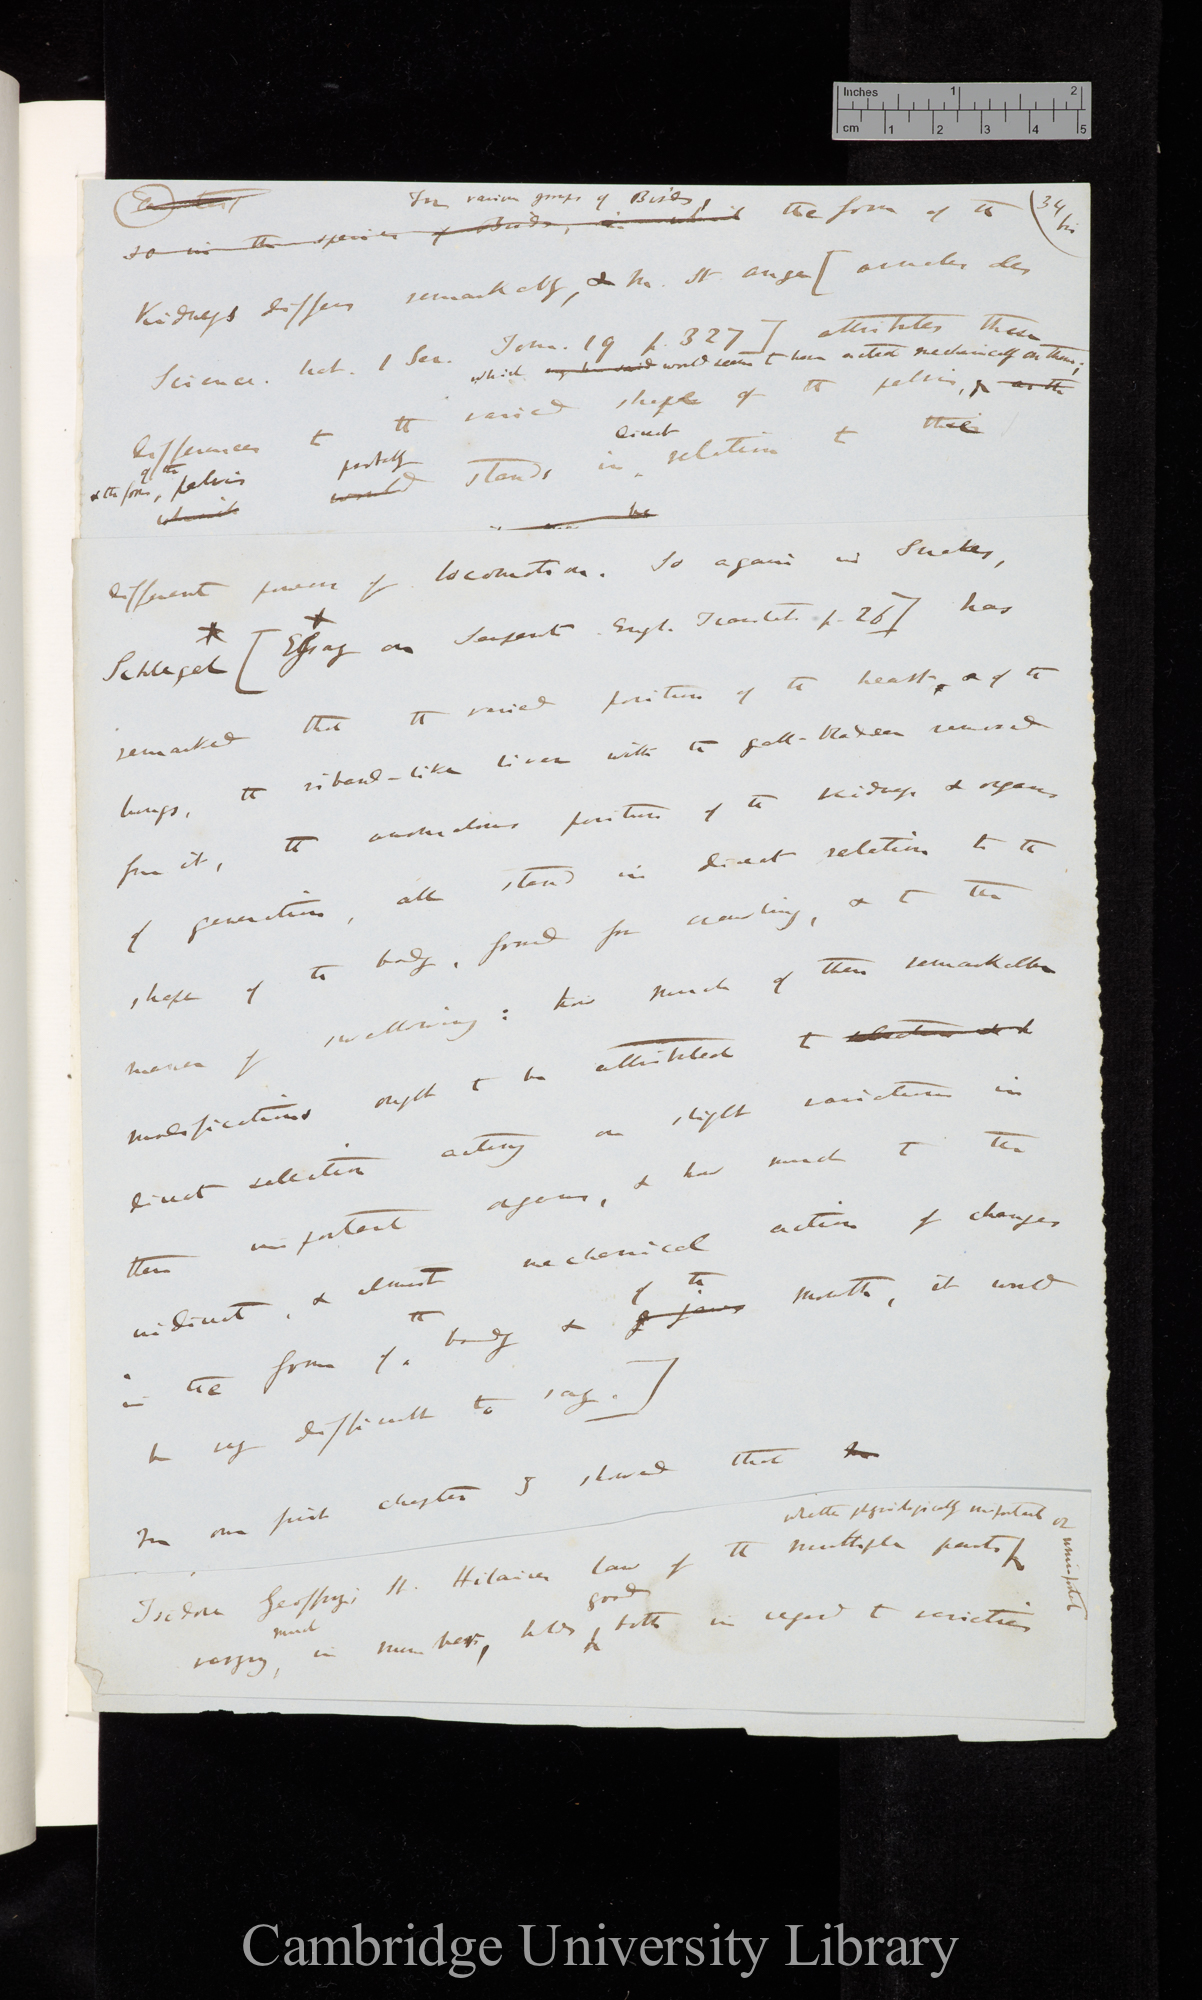 Inches 1 2
cm 1 2 3 4 5
34
bis
In various groups of Birds,
so in the species of Birds, in which the form of the
Kidneys differs remarkably, & M. St. Ange [ Annales des
Science. Nat. 1 Ser. Tom. 19 p. 327 ] attributes these
which may be said would seem to have acted mechanically on them;
differences to the varied shape of the pelvis, & as the
& the form, of the pelvis probably stands in direct relation to their
which would
be
different powers of locomotion. So again in Snakes,
Schlegel [ Essay on Serpents Engl. Translat. p. 26 ] has
remarked that the varied position of the heart, & of the
lungs, the riband-like liver with the gall-bladder removed
from it, the anomalous position of the kidneys & organs
of generation, all stand in direct relation to the
shape of the body, formed for crawling, & to the
manner of swallowing: how much of these remarkable
modifications ought to be attributed to selection
direct selection acting on slight variations in
these important organs, & how much to the
indirect, & almost mechanical action of changes
in the form of the body & of the mouth, it would
of jaws
be very difficult to say. ]
In our first chapter I showed that
whether physiologically important or unimportant
Isidore Geoffroy St. Hilaire's law of the multiple parts,
varying much, in number, holds good, both in regard to varieties
Cambridge University Library